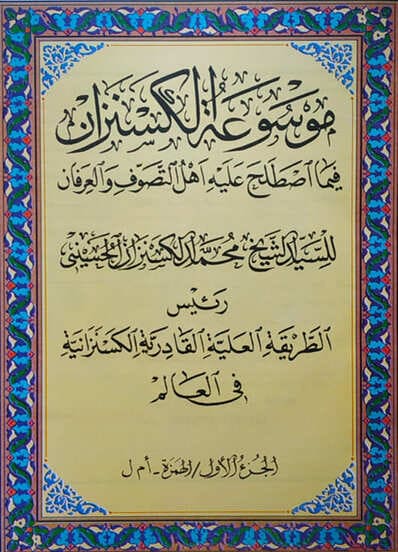 موسوعة الكسنزان
فيما اصطلح عليه أهل التصوف والعرفان
للسيد الشيخ محمد الكسنزان الحسيني
رئيس
الطريقة العلية القادرية الكسنزانية
في العالم
الجزء الأول / الهمزة - أ م ل